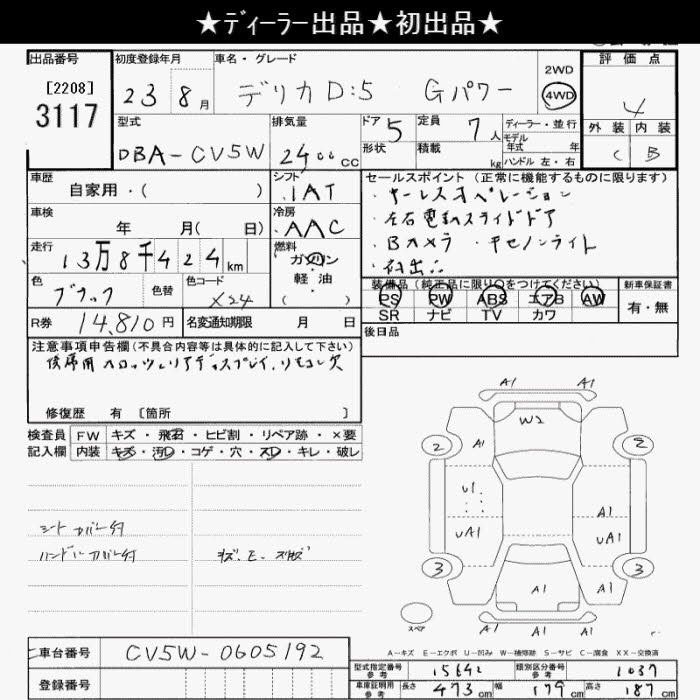 ★ディーラー出品★初出品★
出品番号 初度登録年月 車名・グレード 2WD 評価点
[2208] 3117 23 8月 デリカD:5 Gパワー 4WD 4
型式 排気量 ドア 5 定員 7人 ディーラー・並行 外装 内装
モデル年式 年
DBA-CV5W 2400cc 形状 積載 kg ハンドル 左・右 C B
車歴 自家用・( ) シフト IAT セールスポイント (正常に機能するものに限ります)
・キーレスオペレーション
車検 年 月( 日) 冷房 AAC ・左右電動スライドドア
・Bカメラ ・キセノンライト
走行 13万8千424km 燃料 ガソリン ・初出品
軽油
( )
色 ブラック 色替 色コード X24 装備品 (純正品に限り○をつけてください) 新車保証書
PS PW ABS エアB AW 有・無
SR ナビ TV カワ
R券 14,810円 名変通知期限 月 日 後日品
注意事項申告欄(不具合内容等は具体的に記入して下さい)
後席用 リヤディスプレイ、リモコン欠
修復歴 有 [箇所 ]
検査員記入欄 FW キズ・飛石・ヒビ割・リペア跡・×要
内装 キズ・汚レ・コゲ・穴・スレ・キレ・破レ
シートカバー付
ハンドルカバー付
キズ、E、
A1 A1
W2
2 A1 2
U1
A1
UA1 UA1
3 A1 A1 3
A1 A1
スペア
A-キズ E-エクボ U-凹み W-補修跡 S-サビ C-腐食 XX-交換済
車台番号 CV5W-0605192
登録番号
型式指定番号 参考 15642 類別区分番号 参考 1037
車庫証明用 参考 長さ 473cm 幅 179cm 高さ 187cm